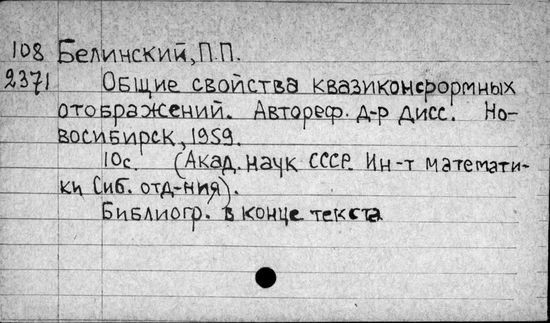 108 Белинский, П.П.
2371 Общие свойства квазиконформных
отображений. Автореф. д-р дисс. Но-
восибирск, 1959.
10с. (Акад. наук СССР. Ин-т математи-
ки Сиб. отд-ния).
Библиогр. в конце текста